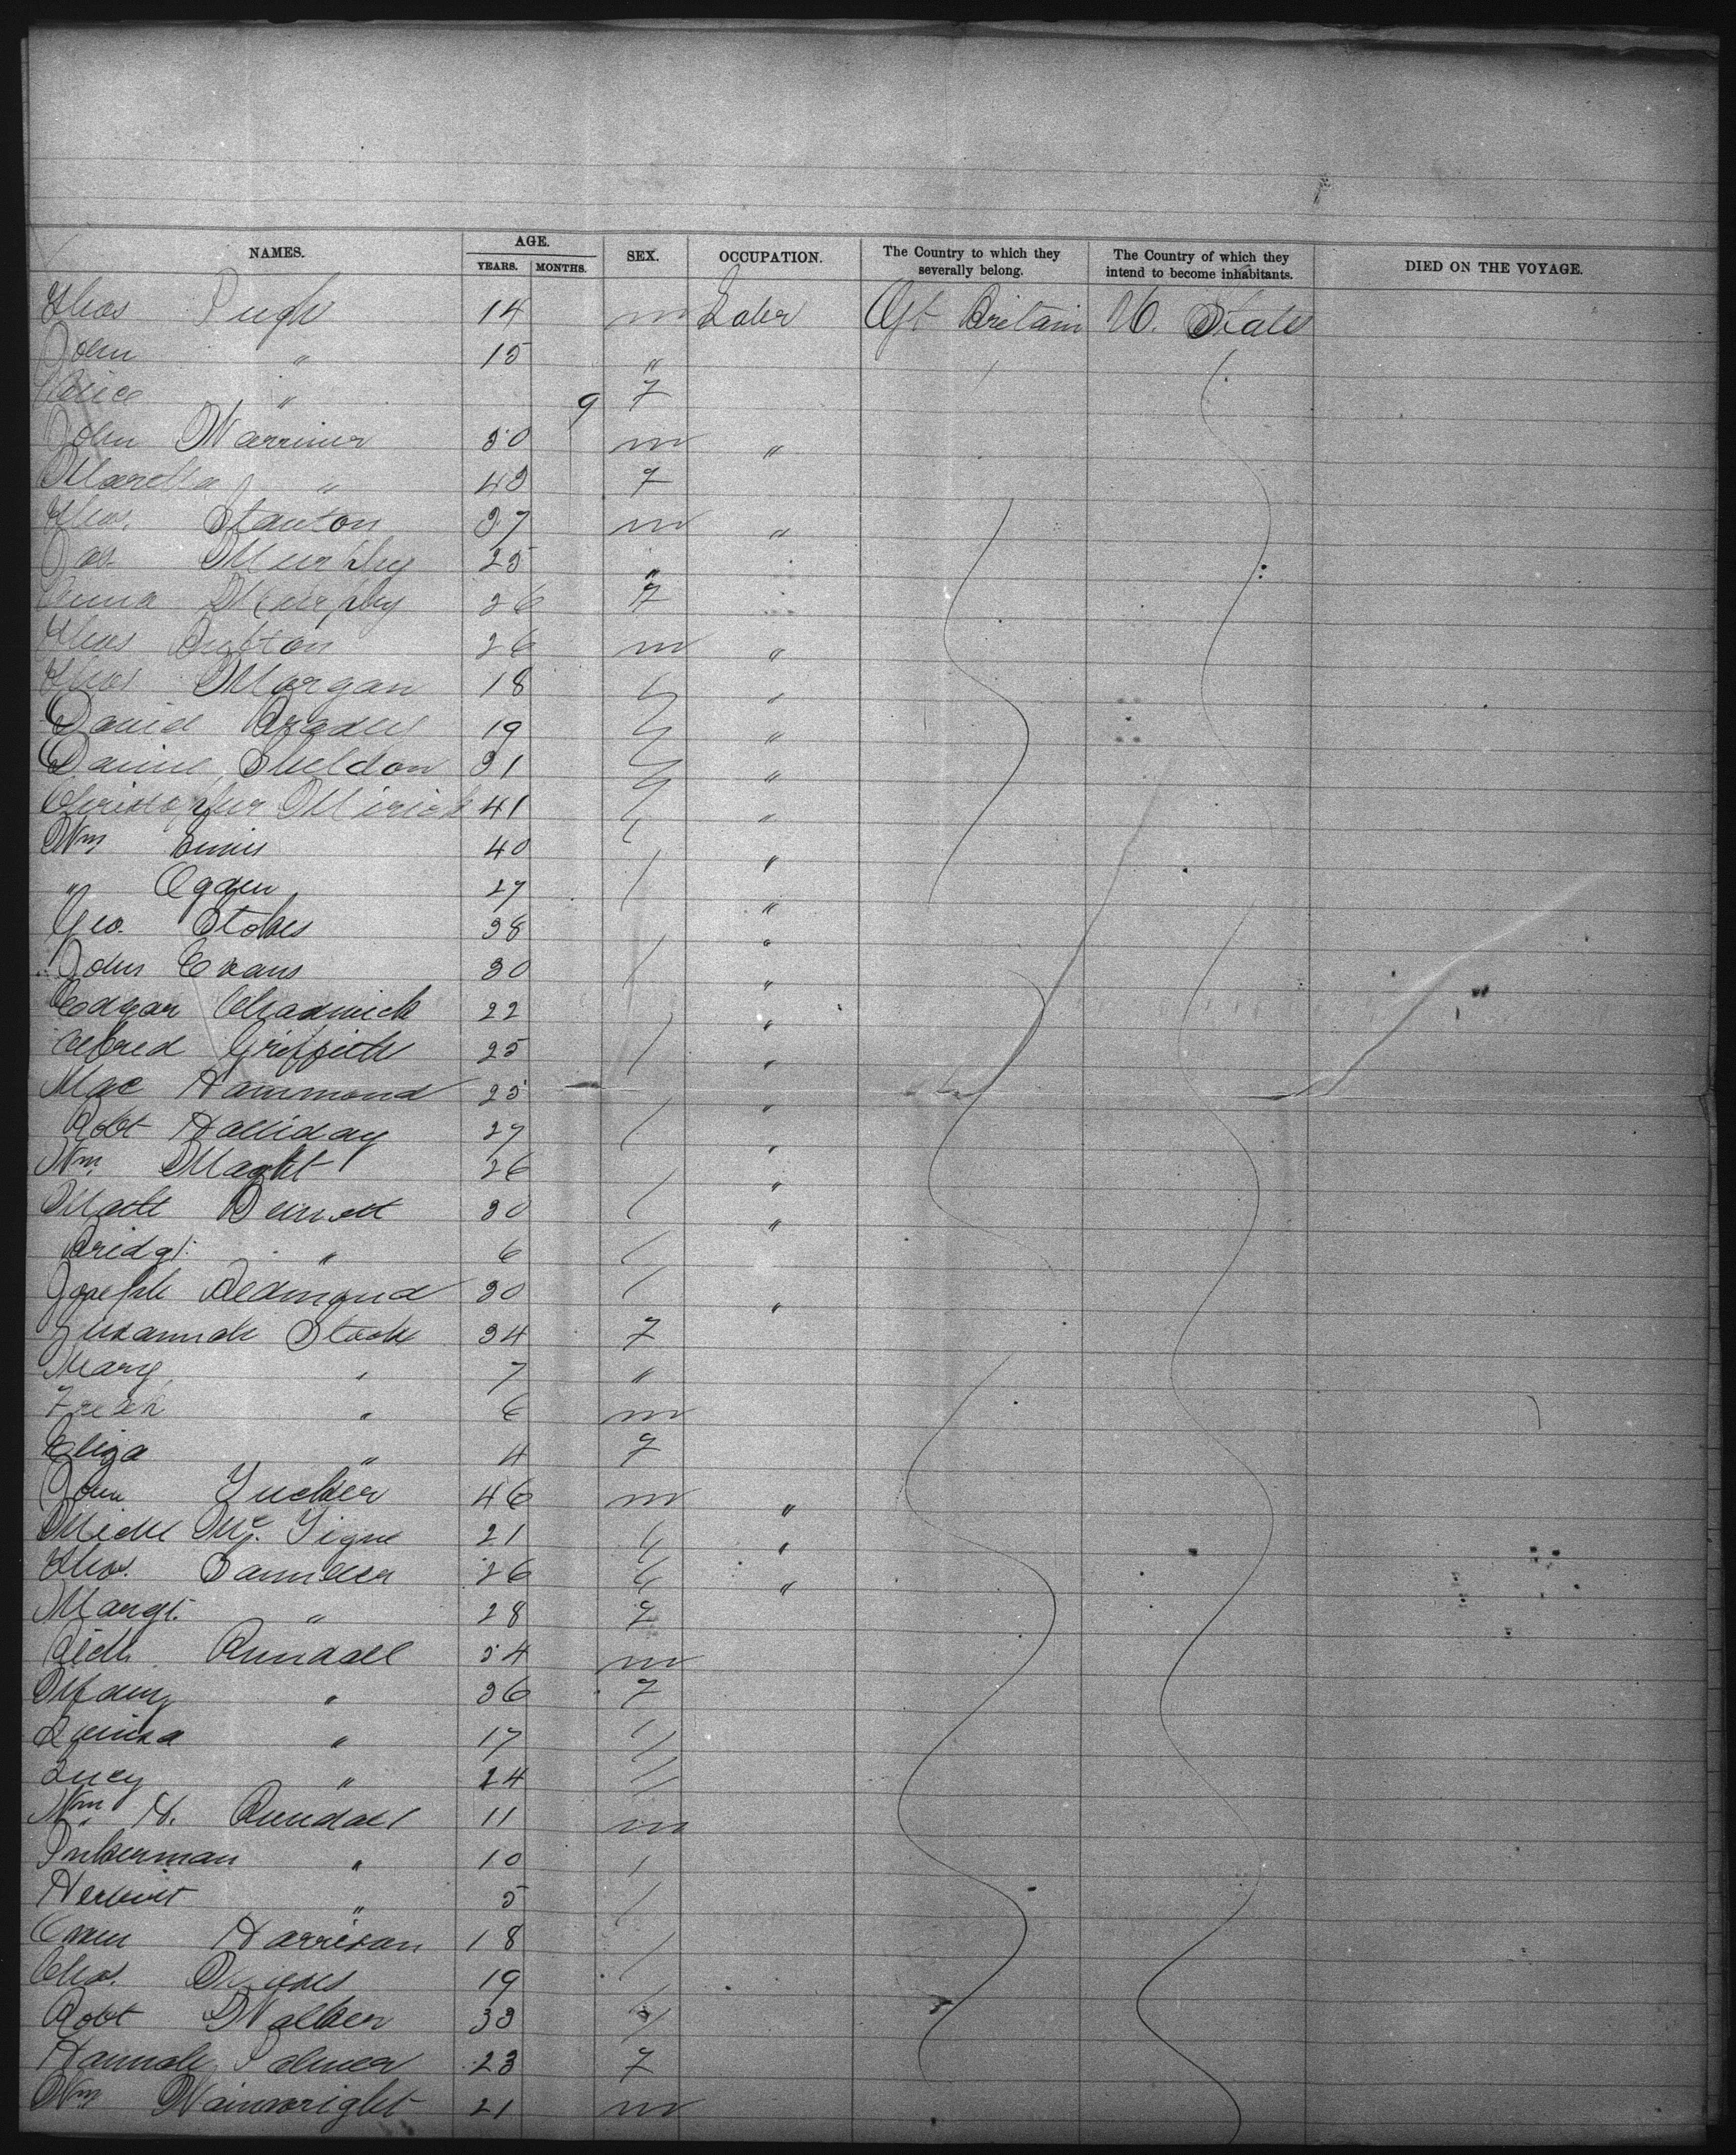 NAMES. AGE. YEARS. MONTHS. SEX. OCCUPATION. The Country to which they severally belong. The Country of which they intend to become inhabitants. DIED ON THE VOYAGE.
Thos Pugh 14 m Labr Gt Britain U. States
John " 15 "
Alice " 9 f
John Warriner 50 m "
Martha " 43 f
Thos. Stanton 37 m "
Jas. Murphy 25 "
Anna Murphy 26 f
Thos 26 m "
Thos Morgan 18 "
David 19 "
Sheldon 31 "
Christopher 41 "
Wm 40 "
" Ogden 27 "
Geo. Stokes 38 "
John Evans 30 "
Edgar Chadwick 22 "
Alfred Griffith 25 "
Mac Hammond 25 "
Robt Halliday 27 "
Wm. 26 "
Matt 30 "
Bridgt. " 6
Joseph Redmond 30 "
Susannah Stock 34 f
Mary " 7 "
" 6 m
Eliza " 4 f
John Tucker 46 m "
Michl McTigue 21 "
Thos. Saunders 26 "
Margt. " 28 f
Richd Rundall 54 m
" 36 f
Louisa " 17
Lucy " 24
Wm H. Rundall 11 m
Inkerman " 10
Herbert " 5
Owen Harrison 18
Chas. 19
Robt Walker 33
Hannah Palmer 23 f
Wm Wainwright 21 m